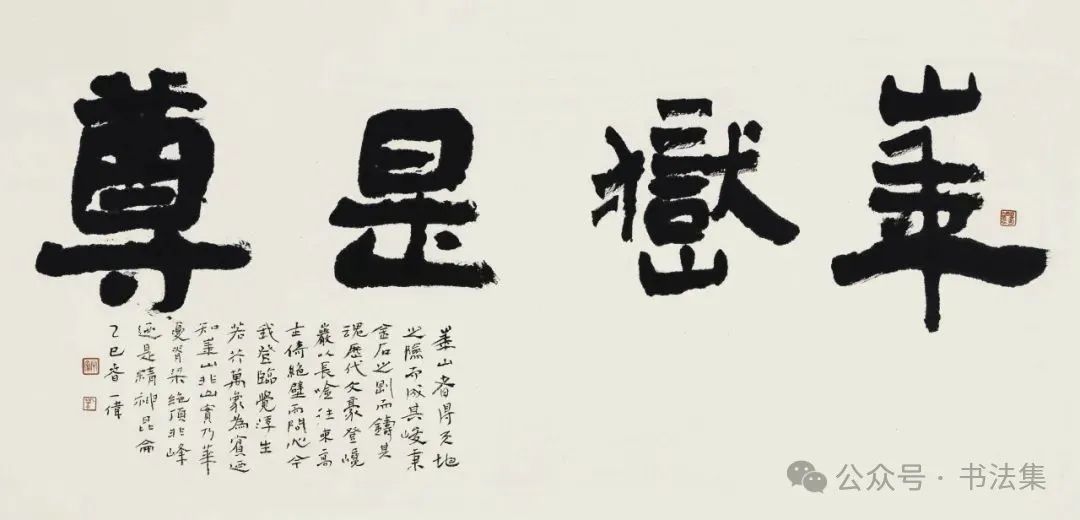 崋嶽是尊
崋山者得天地
之險而成其峻秉
金石之剛而鑄其
魂歷代文豪登嶢
巖以長唫往來高
士倚絕壁而問心今
我登臨覺浮生
若芥萬象為賓迺
知崋山非山實乃華
夏脊梁絕頂非峰
迺是精神昆侖
乙巳春一偉
公众号 · 书法集